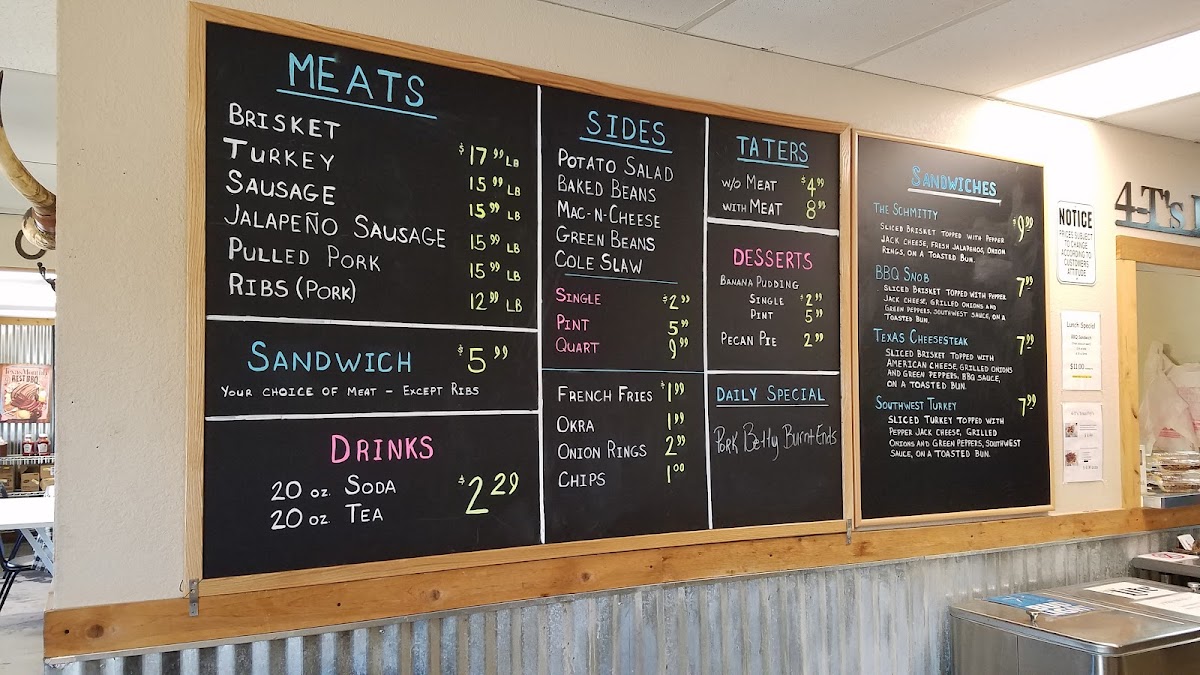 MEATS
BRISKET $17.99 LB
TURKEY 15.99 LB
SAUSAGE 15.99 LB
JALAPEÑO SAUSAGE 15.99 LB
PULLED PORK 15.99 LB
RIBS (PORK) 12.99 LB
SANDWICH $5.99
YOUR CHOICE OF MEAT - EXCEPT RIBS
DRINKS
20 OZ. SODA $2.29
20 OZ. TEA
SIDES
POTATO SALAD
BAKED BEANS
MAC-N-CHEESE
GREEN BEANS
COLE SLAW
SINGLE $2.99
PINT 5.99
QUART 9.99
FRENCH FRIES $1.99
OKRA 1.99
ONION RINGS 2.99
CHIPS 1.00
TATERS
W/O MEAT $4.99
WITH MEAT 8.99
DESSERTS
BANANA PUDDING
SINGLE $2.99
PINT 5.99
PECAN PIE 2.99
DAILY SPECIAL
Pork Belly Burnt Ends
SANDWICHES
THE SCHMITTY $9.99
SLICED BRISKET TOPPED WITH PEPPER
JACK CHEESE, FRESH JALAPENOS, ONION
RINGS, ON A TOASTED BUN.
BBQ SNOB 7.99
SLICED BRISKET TOPPED WITH PEPPER
JACK CHEESE, GRILLED ONIONS AND
GREEN PEPPERS, SOUTHWEST SAUCE, ON A
TOASTED BUN.
TEXAS CHEESESTEAK 7.99
SLICED BRISKET TOPPED WITH
AMERICAN CHEESE, GRILLED ONIONS
AND GREEN PEPPERS, BBQ SAUCE,
ON A TOASTED BUN.
SOUTHWEST TURKEY 7.99
SLICED TURKEY TOPPED WITH
PEPPER JACK CHEESE, GRILLED
ONIONS AND GREEN PEPPERS, SOUTHWEST
SAUCE, ON A TOASTED BUN.
4-T's
NOTICE
PRICES SUBJECT
TO CHANGE
ACCORDING TO
CUSTOMERS
ATTITUDE
Lunch Special
BBQ Sandwich
$11.00
Texas Monthly
BEST BBQ